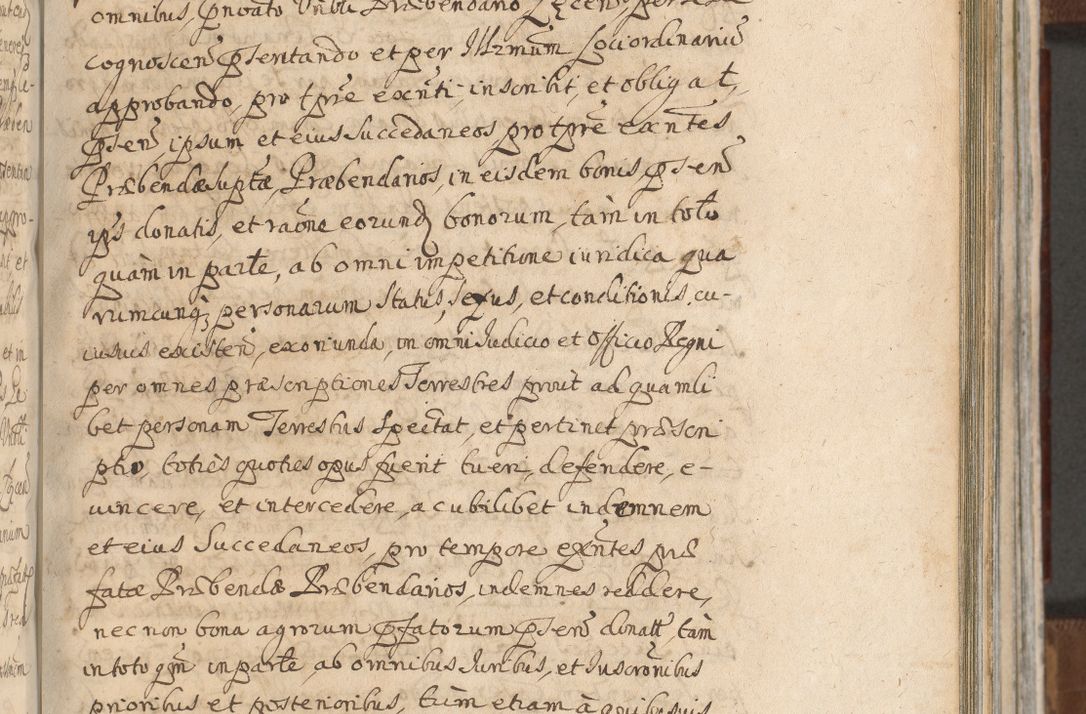 omnibus, privato
cognoscen psentando et per Illrmum Loci ordinariu
approbando, pro tpre exenti, inscribit, et obligat,
psen ipsum et eius Succedaneos pro tpre exntes
Præbendæ supstæ, Præbendarios, in eisdem bonis, psen
donatis, et raõne eorund bonorum, tam in toto
quàm in parte, ab omni impetitione iuridica qua
rumcunq; personarum Status, Sexus, et conditionis, cu-
iusuis existen, exoriunda, in omni Iudicio et Officio Regni
per omnes præscriptiones Terrestres prout ad quamli
bet personam Terrestris Spectat, et pertinet præscri
ptio, toties quoties opus fuerit tueri, defendere, e-
uincere, et intercedere, a cubilibet indemnem
et eius Succedaneos, pro tempore exntes præ
fatæ Præbendæ Præbendarios, indemnes reddere,
nec non bona agrorum pfatorum psen donatt tàm
in toto qm in parte ab omnibus Iuribus, et Iuscronibus
prioribus et posterioribus, tum etiam à quibusuis